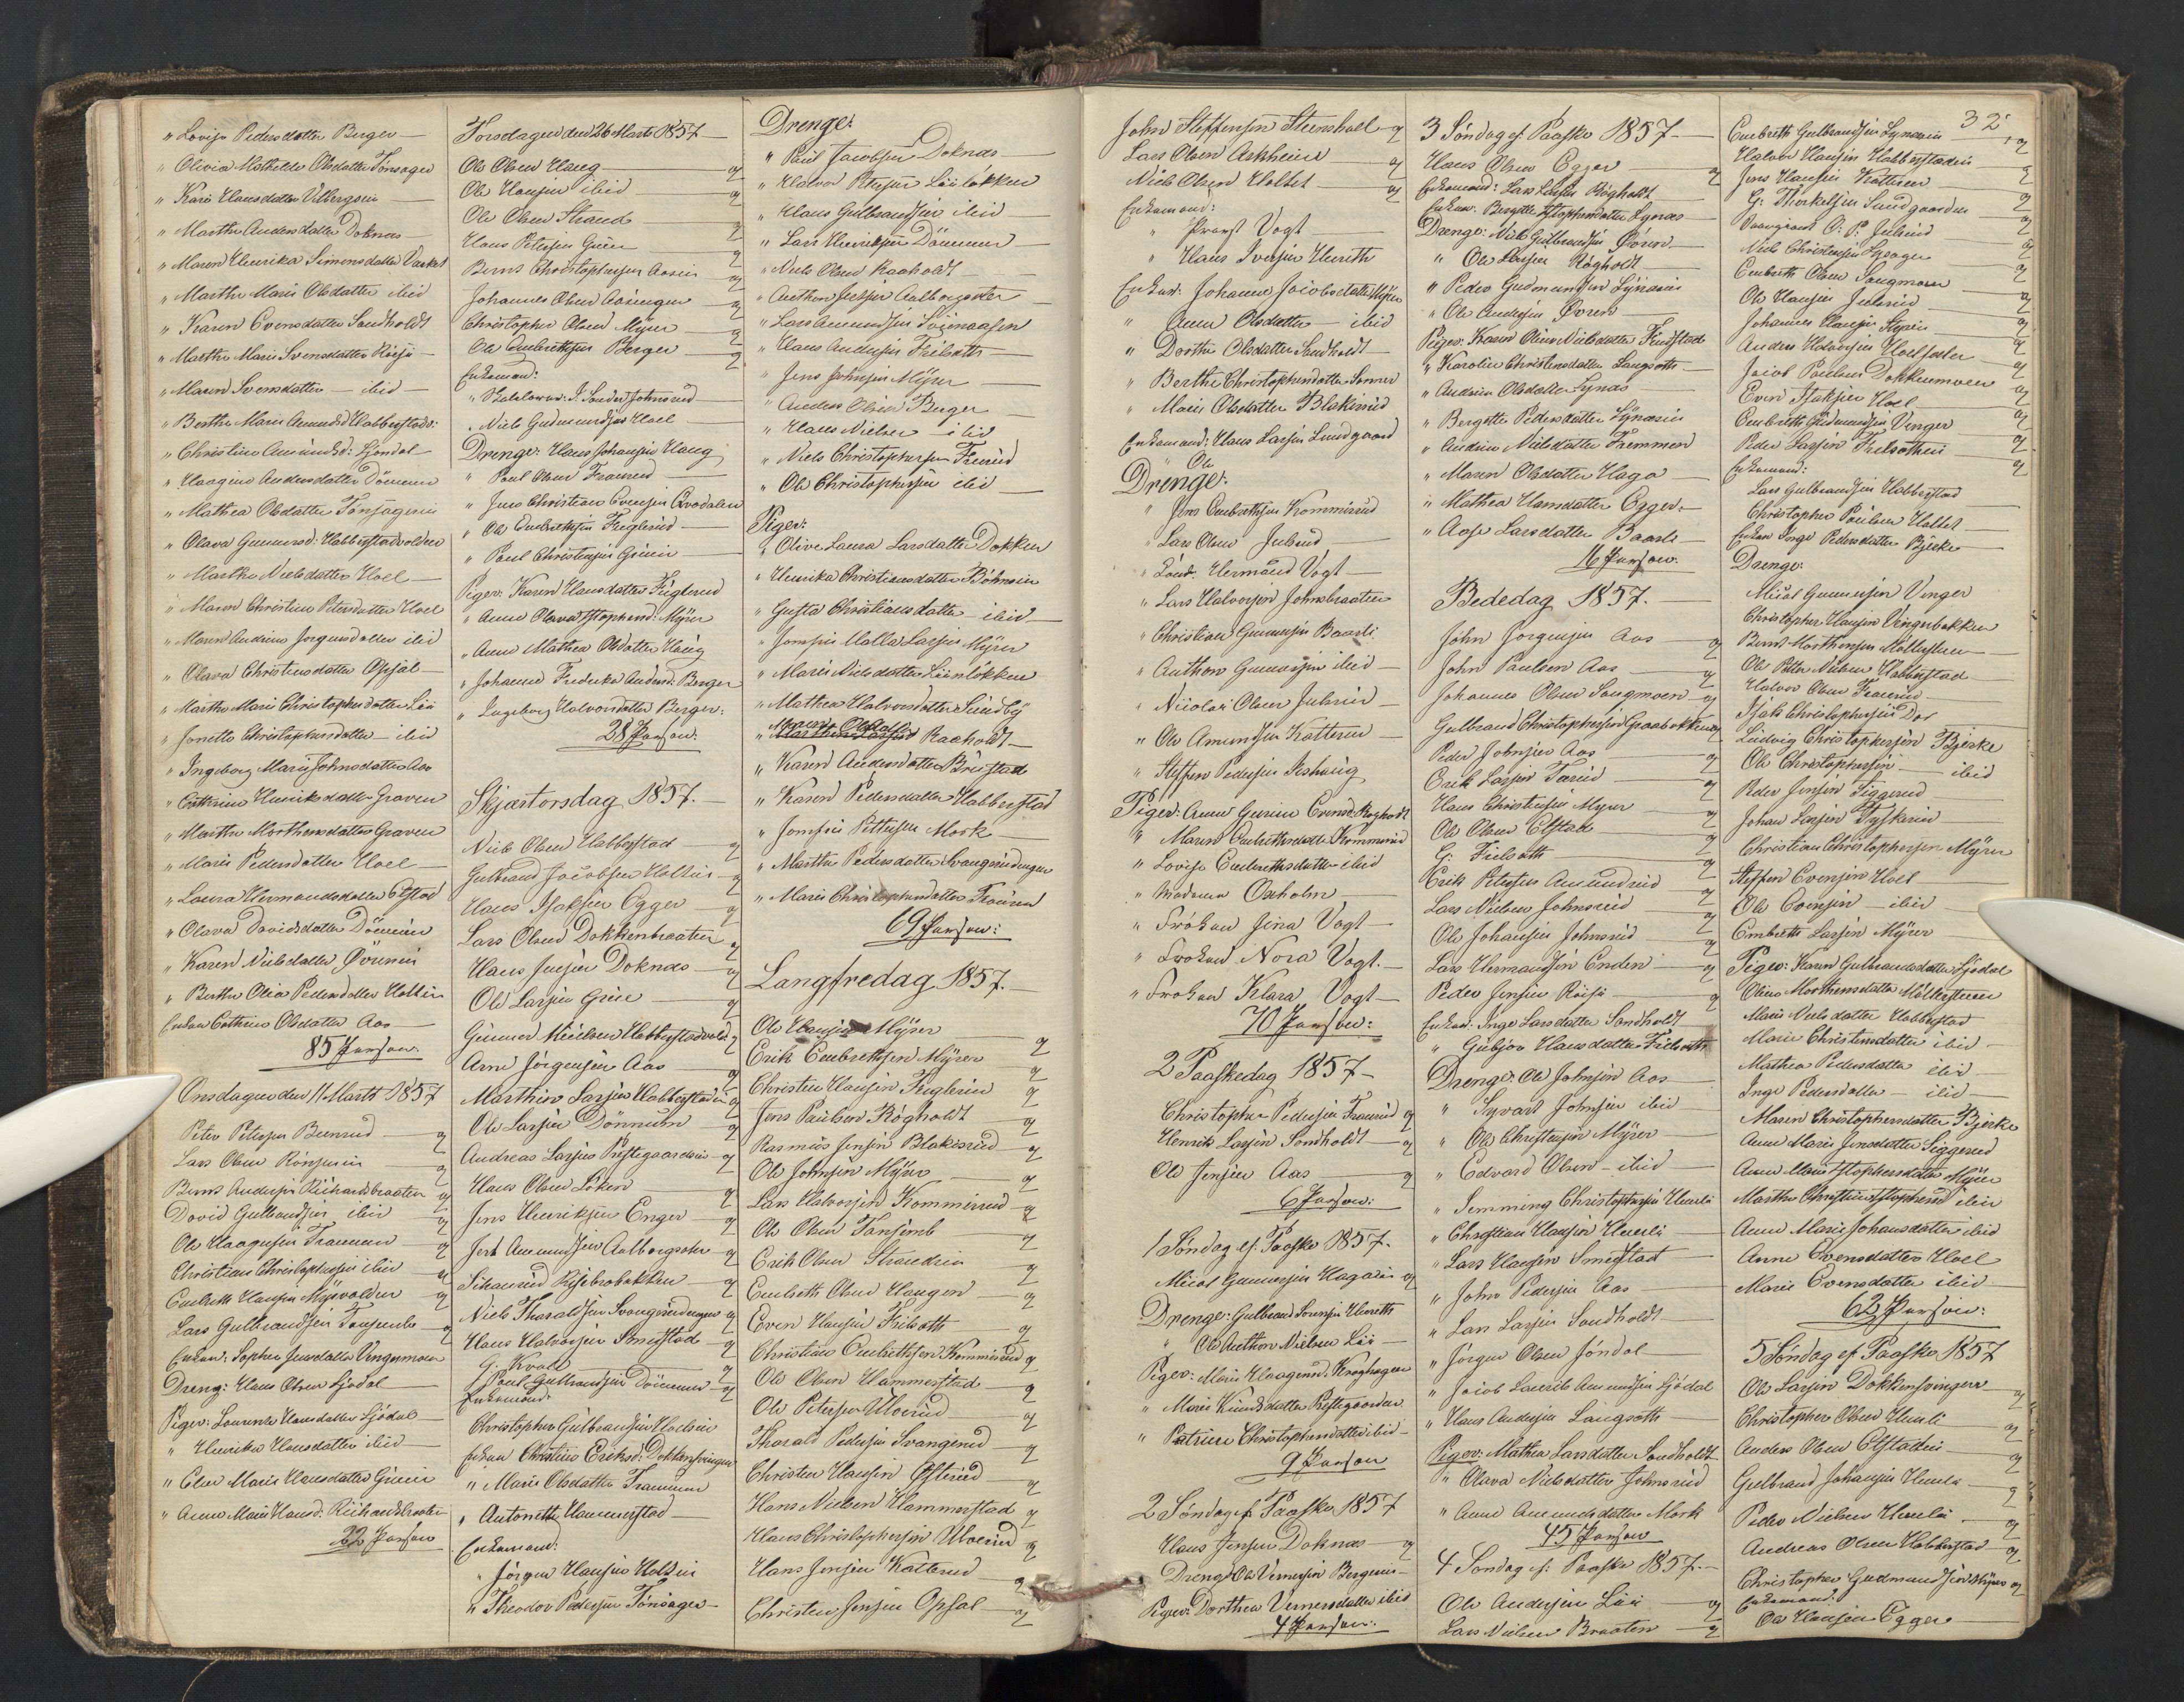 " Lovise Pedersdatter Berger —
" Olivia Mathilde Olsdatter Tønsager
" Kari Hansdatter Vilbergsie —
" Marthe Andersdatter Doknæs —
" Maren Henrika Simensdatter
" Marthe Marie Olsdatter ibid
" Karen Evensdatter Sandholdt
" Marthe Marie Svensdatter Røisje —
" Maren Svensdatter — ibid —
" Berthe Marie Amunds: Habberstadv:
" Christine Amunds: Sjødal —
" Haagine Andersdatter Dønnum
" Mathea Olsdatter Tønsageri
" Olava Gunnersd: Habberstadvolden
" Marthe Nielsdatter Hoel —
" Maren Christine Petersdatter Hoel
" Maren Andrine Jorgensdatter ibid
" Olava Christensdatter Opsal —
" Marthe Marie Christophersdatter Lii
" Jonette Christophersdatter — ibid
" Ingeborg Marie Johnsdatter Aas
" Cathrine Henriksdatter Graven
" Marthe Morthensdatter Graven
" Marie Pedersdatter Hoel —
" Laura Hermandsdatter Elstad
" Olava Davidsdatter Dønnum
" Karen Nielsdatter Øvrenie
" Berthe Olia Pedersdatter Holtie
Enken Cathrine Olsdatter Aas —
85 Personer.
Onsdagen den 11 Marts 1857
Peter Petersen Beenrud — q
Lars Olsen — q
Bernt Andersen Richardsbraaten q
David Gulbrandsen ibid q
Ole Haagensen Traneum q
Christian Christophersen ibid q
Embreth Hansen Myrvolden q
Lars Gulbrandsen q
Enken: Sophie Jensdatter Vengermoen
Dreng: Hans Olsen Sjødal —
Piger: Laurenze Hansdatter Sjødal —
" Henrika Hansdatter ibid —
" Elen Marie Hansdatter Grinie
" Anne Marie Hansd. Richardsbraaten
22 Personer
Torsdagen den 26 Marts 1857 —
Ole Olsen Haug — q
Ole Hansen ibid — q
Ole Olsen Strand — q
Hans Petersen Grue q
Bernt Christophersen Aasen q
Johannes Olsen q
Christopher Olsen Myrer — q
Ole Embrethsen Berger — q
Enkemand:
" Skolelærer: J. Sander Johnsrud —
" Niels Gudmundsen Hoel —
Drenge: Hans Johansen Haug
" Paul Olsen Fraarud —
" Jens Christian Evensen Qvædalen
" Ole Embrethsen Fuglerud —
" Paul Christensen Grinie —
Piger: Karen Hansdatter Fuglerud
" Anne Olava Stophersd: Myrer
" Anne Mathea Olsdatter Haug
" Johanne Fredrikke Andersd: Berger
" Ingeborg Halvorsdatter Berger:
28 Personer:
Skjærtorsdag 1857. —
Niels Olsen Habberstad — q
Gulbrand Jacobsen Holtie — q
Hans Isaksen Egger — q
Lars Olsen Dokkenbraaten q
Hans Jensen Doknæs — q
Ole Larsen Grue — q
Gunner Mikelsen Habberstadvold: q
Arne Jørgensen Aas — q
Marthin Larsen Habberstadie q
Ole Larsen Dønnum — q
Andreas Larsen Præstegaardsie q
Hans Olsen Løken q
Jens Henriksen Enger — q
Jens Amundsen Aalborgsater q
Simend q
Niels Tharaldsen Svangerudengen q
Hans Halvorsen Smestad — q
G: Kvall — q
Paul Gulbrandsen Dønnum — q
Enkemænd:
Christopher Gulbrandsen Hoelsie
Enken Christine Eriksd: Dokkensvingen
" Marie Olsdatter Traneum
" Antonette Hammerstad —
Enkemænd:
" Jørgen Hansen Holdie
" Theodor Pedersen Tønsager —
Drenge:
" Paul Jacobsen Doknæs —
" Halvor Petersen Liiløkken
" Hans Gulbrandsen ibid
" Lars Henriksen Dønnum —
" Niels Olsen Raaholdt —
" Anthon Jensen Aalborgsater —
" Lars Amundsen
" Hans Andersen Trælsæth —
" Jens Johnsen Myrer —
" Anders Olsen Berger —
" Hans Nielsen ibid
" Niels Christophersen Frærud
" Ole Christophersen ibid —
Piger:
" Olive Laura Larsdatter Dokken
" Henrika Christiansdatter Bøhnsie
" Gusta Christiansdatter — ibid —
" Jomfru Malla Larsen Myrer
" Marie Nielsdatter Liinløkken
" Mathea Halvorsdatter Sundby
" Maren Olsdatter Raaholdt —
" Karen Andersdatter Brustad
" Karen Pedersdatter Habberstad
" Jomfru Pettersen Mork —
" Marthe Pedersdatter Svangerudengen
" Marie Christophersdatter Fraarud
69 Personer:
Langfredag 1857. —
Ole Hansen Myrer — q
Erik Embrethsen Myrer q
Christen Hansen Fuglerud q
Jens Paulsen Røgholdt — q
Rasmus Jensen Blakisrud — q
Ole Johnsen Myrer — q
Lars Halvorsen Kommisrud — q
Ole Olsen — q
Erik Olsen Strandie q
Embreth Olsen Haugen — q
Even Hansen Trælsæth — q
Christian Embrethsen Kommisrud q
Ole Olsen Hammerstad q
Ole Petersen Uloerud q
Tharald Pedersen Svangerud q
Christen Hansen Østerud — q
Hans Nielsen Hammerstad q
Hans Christophersen Uloerud q
Hans Jensen Katterud — q
Christen Jensen Opsal — q
32
John Steffensen Steenshoel q
Lars Olsen Askheim — q
Niels Olsen Holtet — q
Enkemænd:
" Provst Vogt —
" Hans Iversen Henreth
Enker: Johanne Jacobsdatter Myrer
" Anne Olsdatter — ibid
" Dorthe Olsdatter Sandholdt
" Berthe Christophersdatter
" Marie Olsdatter Blakisrud
Enkemand: Hans Larsen Lundgaard
Ole
Drenge:
" Jens Embrethsen Kommisrud
" Lars Olsen Julsrud —
" Stud. Hermand Vogt —
" Lars Halvorsen Johnsbraaten
" Christian Gunnersen Baarli
" Anthon Gunnersen ibid —
" Nicolai Olsen Julsrud —
" Ole Amundsen Katterud —
" Steffen Pedersen
Piger: Anne Gurine Evensd: Røgholdt
" Maren Embrethsdatter Kommisrud
" Lovise Embrethsdatter ibid
" Madame Oxholm —
" Frøken Jina Vogt —
" Frøken Nora Vogt. —
" Frøken Klara Vogt —
70 Personer:
2 Paaskedag 1857 —
Christopher Pedersen Fraarud q
Henrik Larsen Sandholdt — q
Ole Jensen Aas — q
6 Personer:
1 Søndag ef: Paaske 1857.
Micol Gunnersen Hagaie q
Drenge: Gulbrand Hovreth
" Ole Anthon Nielsen Lii —
Piger: Marie Haagensd. Kroghagen
" Marie Knudsdatter Præstegaarden
" Patrine Christophersdatter ibid —
9 Personer
2 Søndag ef: Paaske 1857
Hans Jensen Doknæs — q
Dreng: Ole Vernersen Bergerie —
Piger: Dorthea Vernersdatter ibid
4 Personer:
3 Søndag ef: Paaske 1857 —
Hans Olsen Egger — q
Enkemand: Lars Larsen Røgholdt
Enken: Bergitte Stophersdatter Lynæs —
Drenge: Niels Gulbrandsen Øvren —
" Ole Larsen Røgholdt —
" Peder Gudmundsen Lynæsie
" Ole Andersen Øvren —
Piger: Karen Oline Nielsdatter Finstad
" Karoline Christensdatter Langseth —
" Andrine Olsdatter Lynæs —
" Bergitte Pedersdatter Lynæsie
" Andrine Nielsdatter Fremmen
" Maren Olsdatter Haga —
" Mathea Hansdatter Egger —
" Aase Larsdatter Baarli —
16 Personer.
Bededag 1857. —
John Jorgensen Aas — q
John Paulsen Aas — q
Johannes Olsen Saugmoen — q
Gulbrand Christophersen Graabækken q
Peder Johnsen Aas — q
Erik Larsen — q
Hans Christensen Myrer — q
Ole Olsen Elstad — q
G: Trælsæth — q
Erik Petersen Amundrud — q
Lars Nielsen Johnsrud — q
Ole Johansen Johnsrud — q
Lars Hermandsen Enden — q
Peder Jensen Røisje — q
Enken: Inge Larsdatter Sandholdt
" Gubjør Hansdatter Trælsæth
Drenge: Ole Johnsen Aas —
" Syvert Johnsen ibid —
" Ole Christensen Myrer —
" Edvard Olsen — ibid —
" Semming Christophersen Huuli
" Christian Hansen Huuli —
" Lars Hansen Smestad —
" John Pedersen Aas —
" Lars Larsen Sandholdt —
" Jørgen Olsen Jøndal —
" Jacob Laurits Amundsen Sjødal
" Hans Andersen Langseth —
Piger: Mathea Larsdatter Sandholdt
" Olava Nielsdatter Johnsrud
" Anne Amundsdatter Mork
45 Personer
4 Søndag ef: Paaske 1857. —
Ole Andersen Lii — q
Lars Nielsen Braaten — q
Embreth Gulbrandsen Lynæsie q
Halvor Hansen Habberstadie q
Jens Hansen Katterud — q
G: Thorkelsen Sundgaarden q
O: P: Julsrud q
Niels Christensen q
Embreth Olsen Saugmoen q
Ole Hansen Julsrud q
Johannes Hansen Styrie q
Anders Halvorsen Hoelsæter q
Jacob Paulsen Dokkenmoen q
Even Isaksen Hoel q
Embreth Gudmundsen Vinger q
Peder Larsen Trælsæthie q
Enkemænd:
Lars Gulbrandsen Habberstad
Christopher Paulsen Holtet —
Enken Inge Pedersdatter Bjerke
Drenge:
Micol Gunnersen Vinger
Christopher Hansen Vingerbakken
Bernt Morthensen Møllerstuen —
Ole Petter Nielsen Habberstad
Halvor Olsen Fraarud —
Isak Christophersen Dal
Ludvig Christophersen Bjerke
Ole Christophersen — ibid
Peder Jensen Siggerud
Johan Larsen Tyskerud
Christian Christophersen Myrer
Steffen Evensen Hoel
Ole Evensen — ibid —
Embreth Larsen Myrer —
Piger: Karen Gulbrandsdatter Sjødal
Oline Morthensdatter Møllerstuen
Marie Nielsdatter Habberstad
Marie Christensdatter ibid —
Mathea Pedersdatter ibid —
Inge Pedersdatter — ibid —
Maren Christophersdatter Bjerke
Anne Marie Jensdatter Siggerud
Anne Marie Stophersdatter Myrer
Marthe Christine Stophersd ibid
Anne Marie Johansdatter ibid
Anne Evensdatter Hoel
Marie Evensdatter ibid
62 Personer:
5 Søndag ef: Paaske 1857
Ole Larsen Dokkensvingen q
Christopher Olsen Huuli q
Anders Olsen Elstadie — q
Gulbrand Johansen Huuli — q
Peder Nielsen Huuli — q
Andreas Olsen Habberstad — q
Christopher Gudmundsen Myrer q
Enkemand:
Ole Hansen Egger —